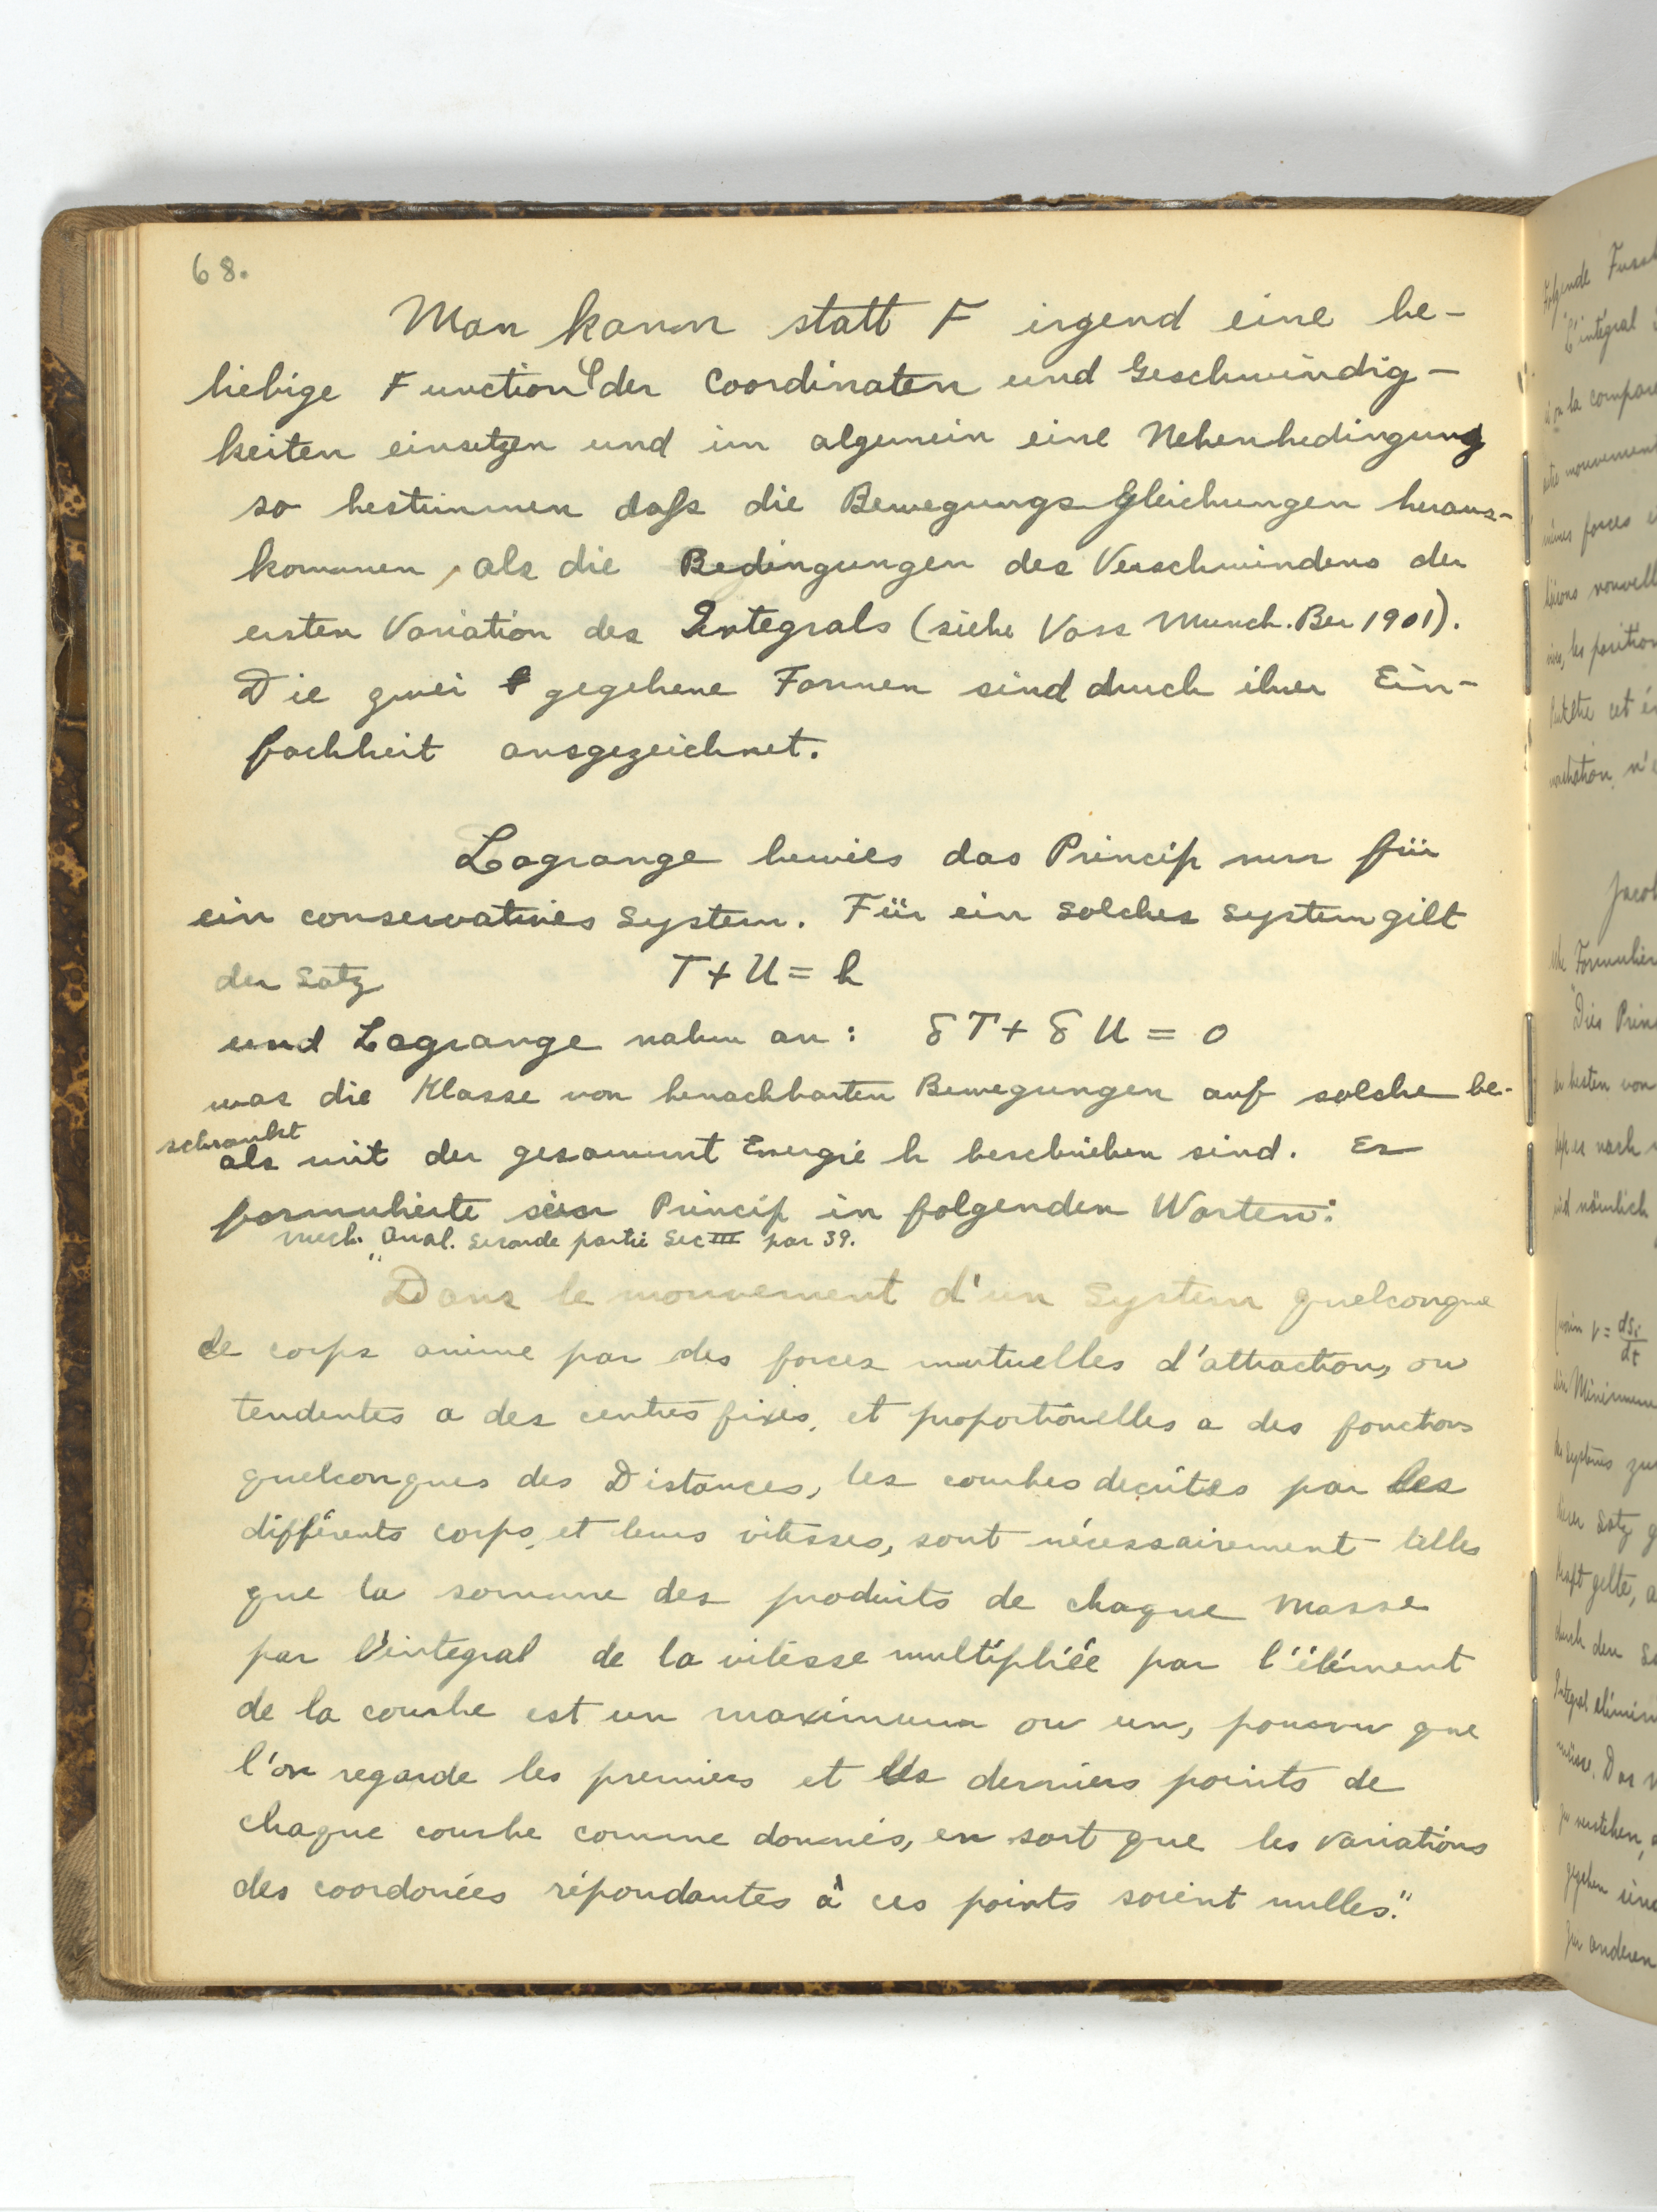 68.
Man kann statt F irgend eine be-
liebige Function der Coordinaten und Geschwindig-
keiten einsetzen und im algemein eine Nebenbedingung
so bestimmen daß die Bewegungsgleichungen heraus-
kommen, als die Bedingungen des Verschwindens der
ersten Variation des Integrals (siehe Voss Munch. Ber 1901).
Die zwei gegebene Formen sind durch ihrer Ein-
fachheit ausgezeichnet.
Lagrange bewies das Princip nur für
ein conservatives System. Für ein solches System gilt
der Satz T + U = h
und Lagrange nahm an: δT + δU = 0
was die Klasse von benachbarten Bewegungen auf solche be-
schrankt
als mit der gesammt Energie h beschrieben sind. Er
formulierte sein Princip in folgenden Worten:
Mech. Anal. Seconde partie Sec III par 39.
"Dans le mouvement d'un System quelconque
de corps anime par des forces mutuelles d'attraction, ou
tendentes a des centres fixes, et proportionelles a des fonctions
quelconques des Distances, les courbes decrites par les
différents corps, et leurs vitesses, sont nécessairement telles
que la somme des produits de chaque masse
par l'integral de la vitesse multipliée par l'élément
de la courbe est un maximum ou un, pourvu que
l'on regarde les premiers et les derniers points de
chaque courbe comme donnés, en sort que les variations
des coordonées répondantes à ces points soient nulles."
folgende
L'integral
la compare
mouvement
forces
nouvell
les position
cet
n'e
Jacob
Formulier
"Dies Prin
besten von
nach
nämlich
v = dsi/dt
Minimum
Systems zu
Satz
gelte, a
durch den
Integral elimin
müsse. Das
zu verstehen,
gegeben
zu anderen